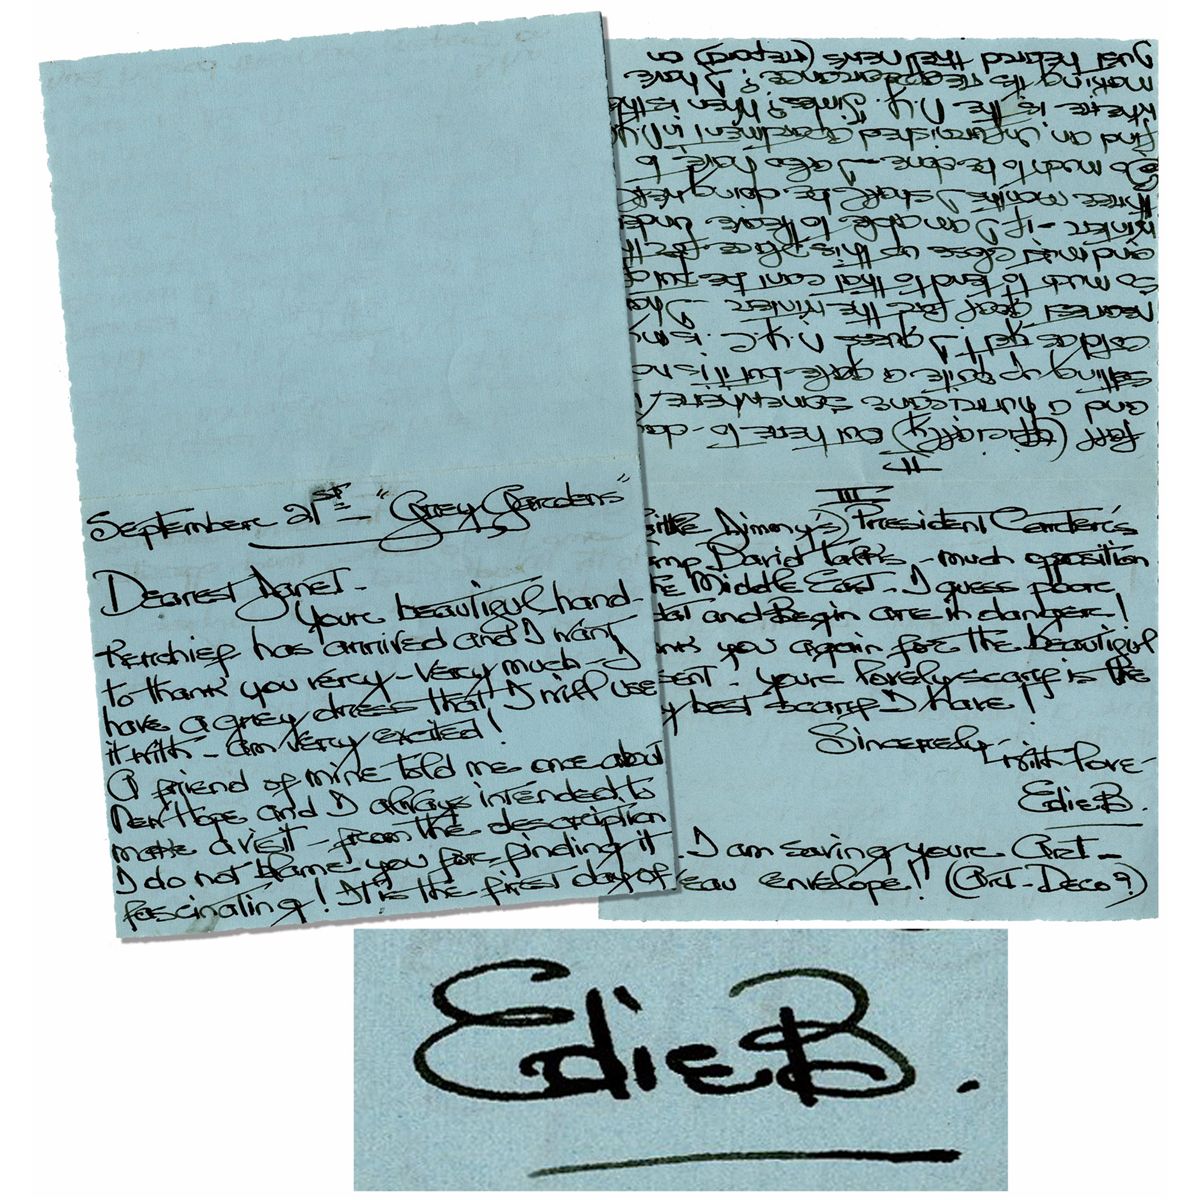 September 21st - "Grey Gardens"
Dearest Janet -
Your beautiful hand-
kerchief has arrived and I want
to thank you very - very much - I
have a grey dress that I will use
it with - am very excited!
A friend of mine told me once about
New Hope and I always intended to
make a visit - from the description
I do not blame you for finding it
fascinating! It is the first day of
II
fall (officially) out here to-day
and a hurricane somewhere is
setting up quite a gale but it is not
cold as yet I guess N.Y.C. is my
nearest goal for the winter I have
so much to tend to that can't be put
and must close up this place for the
winter - if I am able to leave under
three months I shall be doing well
So much to be done - I also have to
find an unfurnished apartment in N.Y.
where is the N.Y. Times? When is the
making its reappearance? I have
just heard the news (report) on
III
Dimony's) President Carter's
Camp David talks - much opposition
Middle East - I guess poor
Sadat and Begin are in danger!
Thank you again for the beautiful
present - your lovely scarf is the
very best scarf I have!
Sincerely -
with love -
Edie B.
I am saving your Art -
envelope! (Art-Deco?)
Edie B.